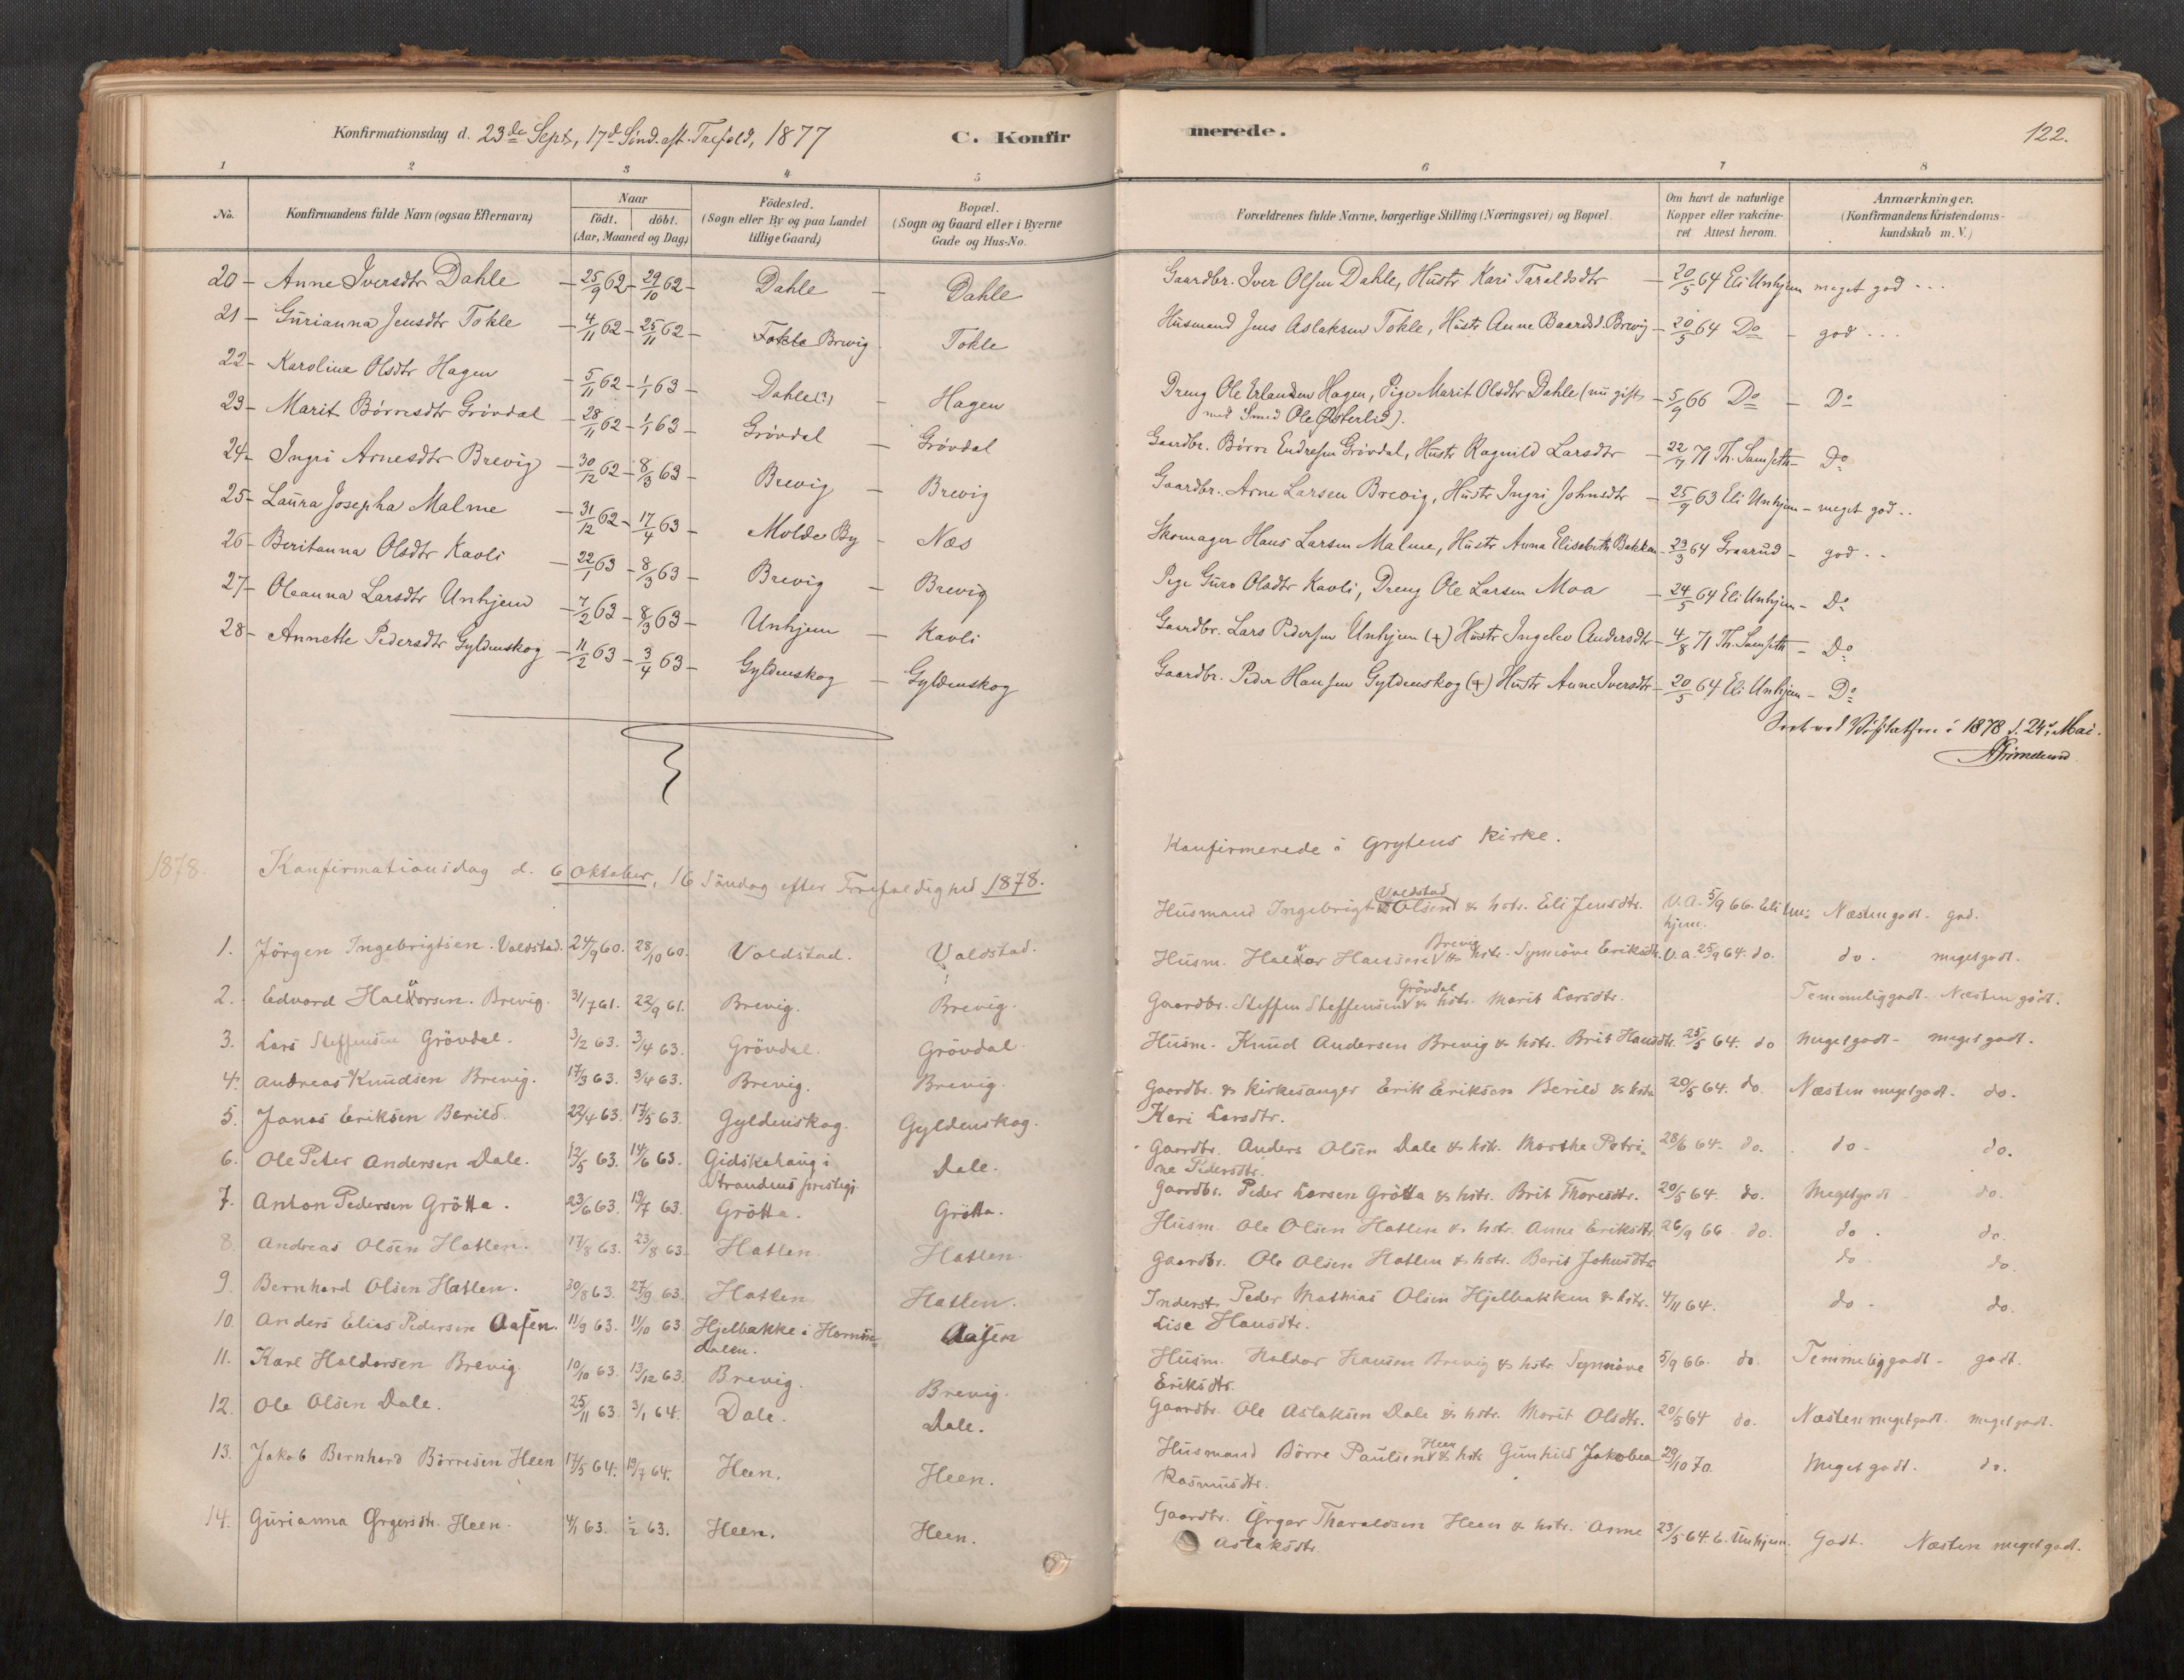 Konfirmationsdag d. 23de Sept, 17d Sønd. eft. Trefold, 1877 C. Konfir
merede. 122.
1 2 3 4 5
6 7 8
No. Konfirmandens fulde Navn (ogsaa Efternavn) Naar födt. döbt. (Aar, Maaned og Dag) Födested. (Sogn eller By og paa Landet tillige Gaard) Bopæl. (Sogn og Gaard eller i Byerne Gade og Hus-No.
Forældrenes fulde Navne, borgerlige Stilling (Næringsvei) og Bopæl. Om havt de naturlige Kopper eller vakcineret Attest herom. Anmærkninger. (Konfirmandens Kristendomskundskab m. V.)
20 - Anne Iversdtr Dahle - 25/9 62 - 29/10 62 - Dahle - Dahle Gaardbr. Iver Olsen Dahle, Hustr Kari Taraldsdtr - 20/5 64 Eli Unhjem meget god ...
21 - Gurianna Jensdtr Tokle - 4/11 62 - 25/11 62 - Tokle Brevig Tokle Husmand Jens Aslaksen Tokle, Hustr Anne Baardsd. Brevig - 20/5 64 Do - god ...
22 - Karoline Olsdtr Hagen - 5/11 62 - 1/1 63 - Dahle(?) - Hagen Dreng Ole Erlandsen Hagen, Pige Marit Olsdtr Dahle (nu gift - 5/9 66 Do - Do
med Smed Ole Østerlid).
23 - Marit Børresdtr Grövdal - 28/11 62 - 1/1 63 - Grövdal - Grövdal Gaardbr. Börre Endresen Grövdal, Hustr Ragnild Larsdtr - 22/7 71 Th. Samseth - Do
24 - Ingri Arnesdtr Brevig - 30/12 62 - 8/3 63 - Brevig - Brevig Gaardbr. Arne Larsen Brevig, Hustr Ingri Johnsdtr - 25/9 63 Eli Unhjem - meget god ..
25 - Laura Josepha Malme - 31/12 62 - 17/4 63 - Molde By - Næs Skomager Hans Larsen Malme, Hustr Anna Elisabeth Bakken - 29/3 64 Graarud - god ..
26 - Beritanna Olsdtr Kavli - 22/1 63 - 8/3 63 - Brevig - Brevig Pige Guro Olsdtr Kavli, Dreng Ole Larsen Moa - 24/5 64 Eli Unhjem - Do
27 - Oleanna Larsdtr Unhjem - 7/2 63 - 8/3 63 - Unhjem - Kavli Gaardbr. Lars Pedersen Unhjem (+) Hustr Ingelev Andersdtr - 4/8 71 Th. Samseth - Do
28 - Annette Pedersdtr Gyldenskog - 11/2 63 - 3/4 63 - Gyldenskog - Gyldenskog Gaardbr. Peder Hansen Gyldenskog (+) Hustr Anne Iversdtr - 20/5 64 Eli Unhjem - Do
Seet ved Visitatsen i 1878 d. 24. Mai.
Grimelund
Konfirmerede i Grytens Kirke.
1878. Konfirmationsdag d. 6 Oktober, 16 Söndag efter Trefoldighed 1878.
1. Jörgen Ingebrigtsen. Voldstad. 24/9 60. 28/10 60. Voldstad. Voldstad. Husmand Ingebrigt Olsen Voldstad & hstr. Eli Jensdtr. V.A. 5/9 66. Eli Unhjem. Næsten godt. god.
2. Edvard Halvorsen. Brevig. 31/7 61. 22/9 61. Brevig. Brevig. Husm. Halvor Hansen Brevig & hstr. Synnöve Eriksdtr. V.a. 25/9 64. do. do. megetgodt.
3. Lars Steffensen Grövdal. 3/2 63. 3/4 63. Grövdal. Grövdal. Gaardbr. Steffen Steffensen Grövdal & hstr. Marit Larsdtr. Temmeliggodt. Næsten godt.
4. Andreas Knudsen Brevig. 17/3 63. 3/4 63. Brevig. Brevig. Husm. Knud Andersen Brevig & hstr. Brit Hansdtr. 25/5 64. do Megetgodt - megetgodt.
5. Jonas Eriksen Berild. 22/4 63. 17/5 63. Gyldenskog. Gyldenskog. Gaardbr. & Kirkesanger Erik Eriksen Berild & hstr. 20/5 64. do. Næsten megetgodt. do.
Kari Larsdtr.
6. Ole Peter Andersen Dale. 12/5 63. 14/6 63. Gidskehaug i Strandens præstegj. Dale. Gaardbr. Anders Olsen Dale & hstr. Marthe Petri- 28/6 64. do. do. do.
ne Pedersdtr.
7. Anton Pedersen Grötta. 23/6 63. 19/7 63. Grötta. Grötta. Gaardbr. Peder Larsen Grötta & hstr. Brit Thoresdtr. 20/5 64. do. Megetgodt do.
8. Andreas Olsen Hatlen. 17/8 63. 23/8 63. Hatlen. Hatlen. Husm. Ole Olsen Hatlen & hstr. Anne Eriksdtr. 26/9 66 do. do. do.
9. Bernhard Olsen Hatlen. 30/8 63. 27/9 63. Hatlen Hatlen. Gaardbr. Ole Olsen Hatlen & hstr. Berit Johnsdtr. do. do.
10. Anders Elias Pedersen Aasen. 11/9 63. 11/10 63 Hjelbakke i Hornindalen. Aasen Inderst. Peder Mathias Olsen Hjelbakken & hstr. 4/11 64. do. do.
Lise Hansdtr.
11. Karl Haldorsen Brevig. 10/10 63. 13/12 63. Brevig. Brevig. Husm. Haldor Hansen Brevig & hstr. Synnöve 5/9 66. do. Temmeliggodt - godt.
Eriksdtr.
12. Ole Olsen Dale. 25/11 63. 3/1 64. Dale. Dale. Gaardbr. Ole Aslaksen Dale & hstr. Marit Olsdtr. 20/5 64 do. Næsten megetgodt. megetgodt.
13. Jakob Bernhard Börresen Heen 17/5 64. 19/7 64. Heen. Heen. Husmand Börre Paulsen Heen & hstr. Gunhild Jakobea 29/10 70. Meget godt. do.
Rasmusdtr.
14. Gurianna Ørgersdtr. Heen. 4/1 63. 1/2 63. Heen. Heen. Gaardbr. Ørger Tharaldsen Heen & hstr. Anne 23/5 64. E. Unhjem. Godt. Næsten megetgodt.
Aslaksdtr.